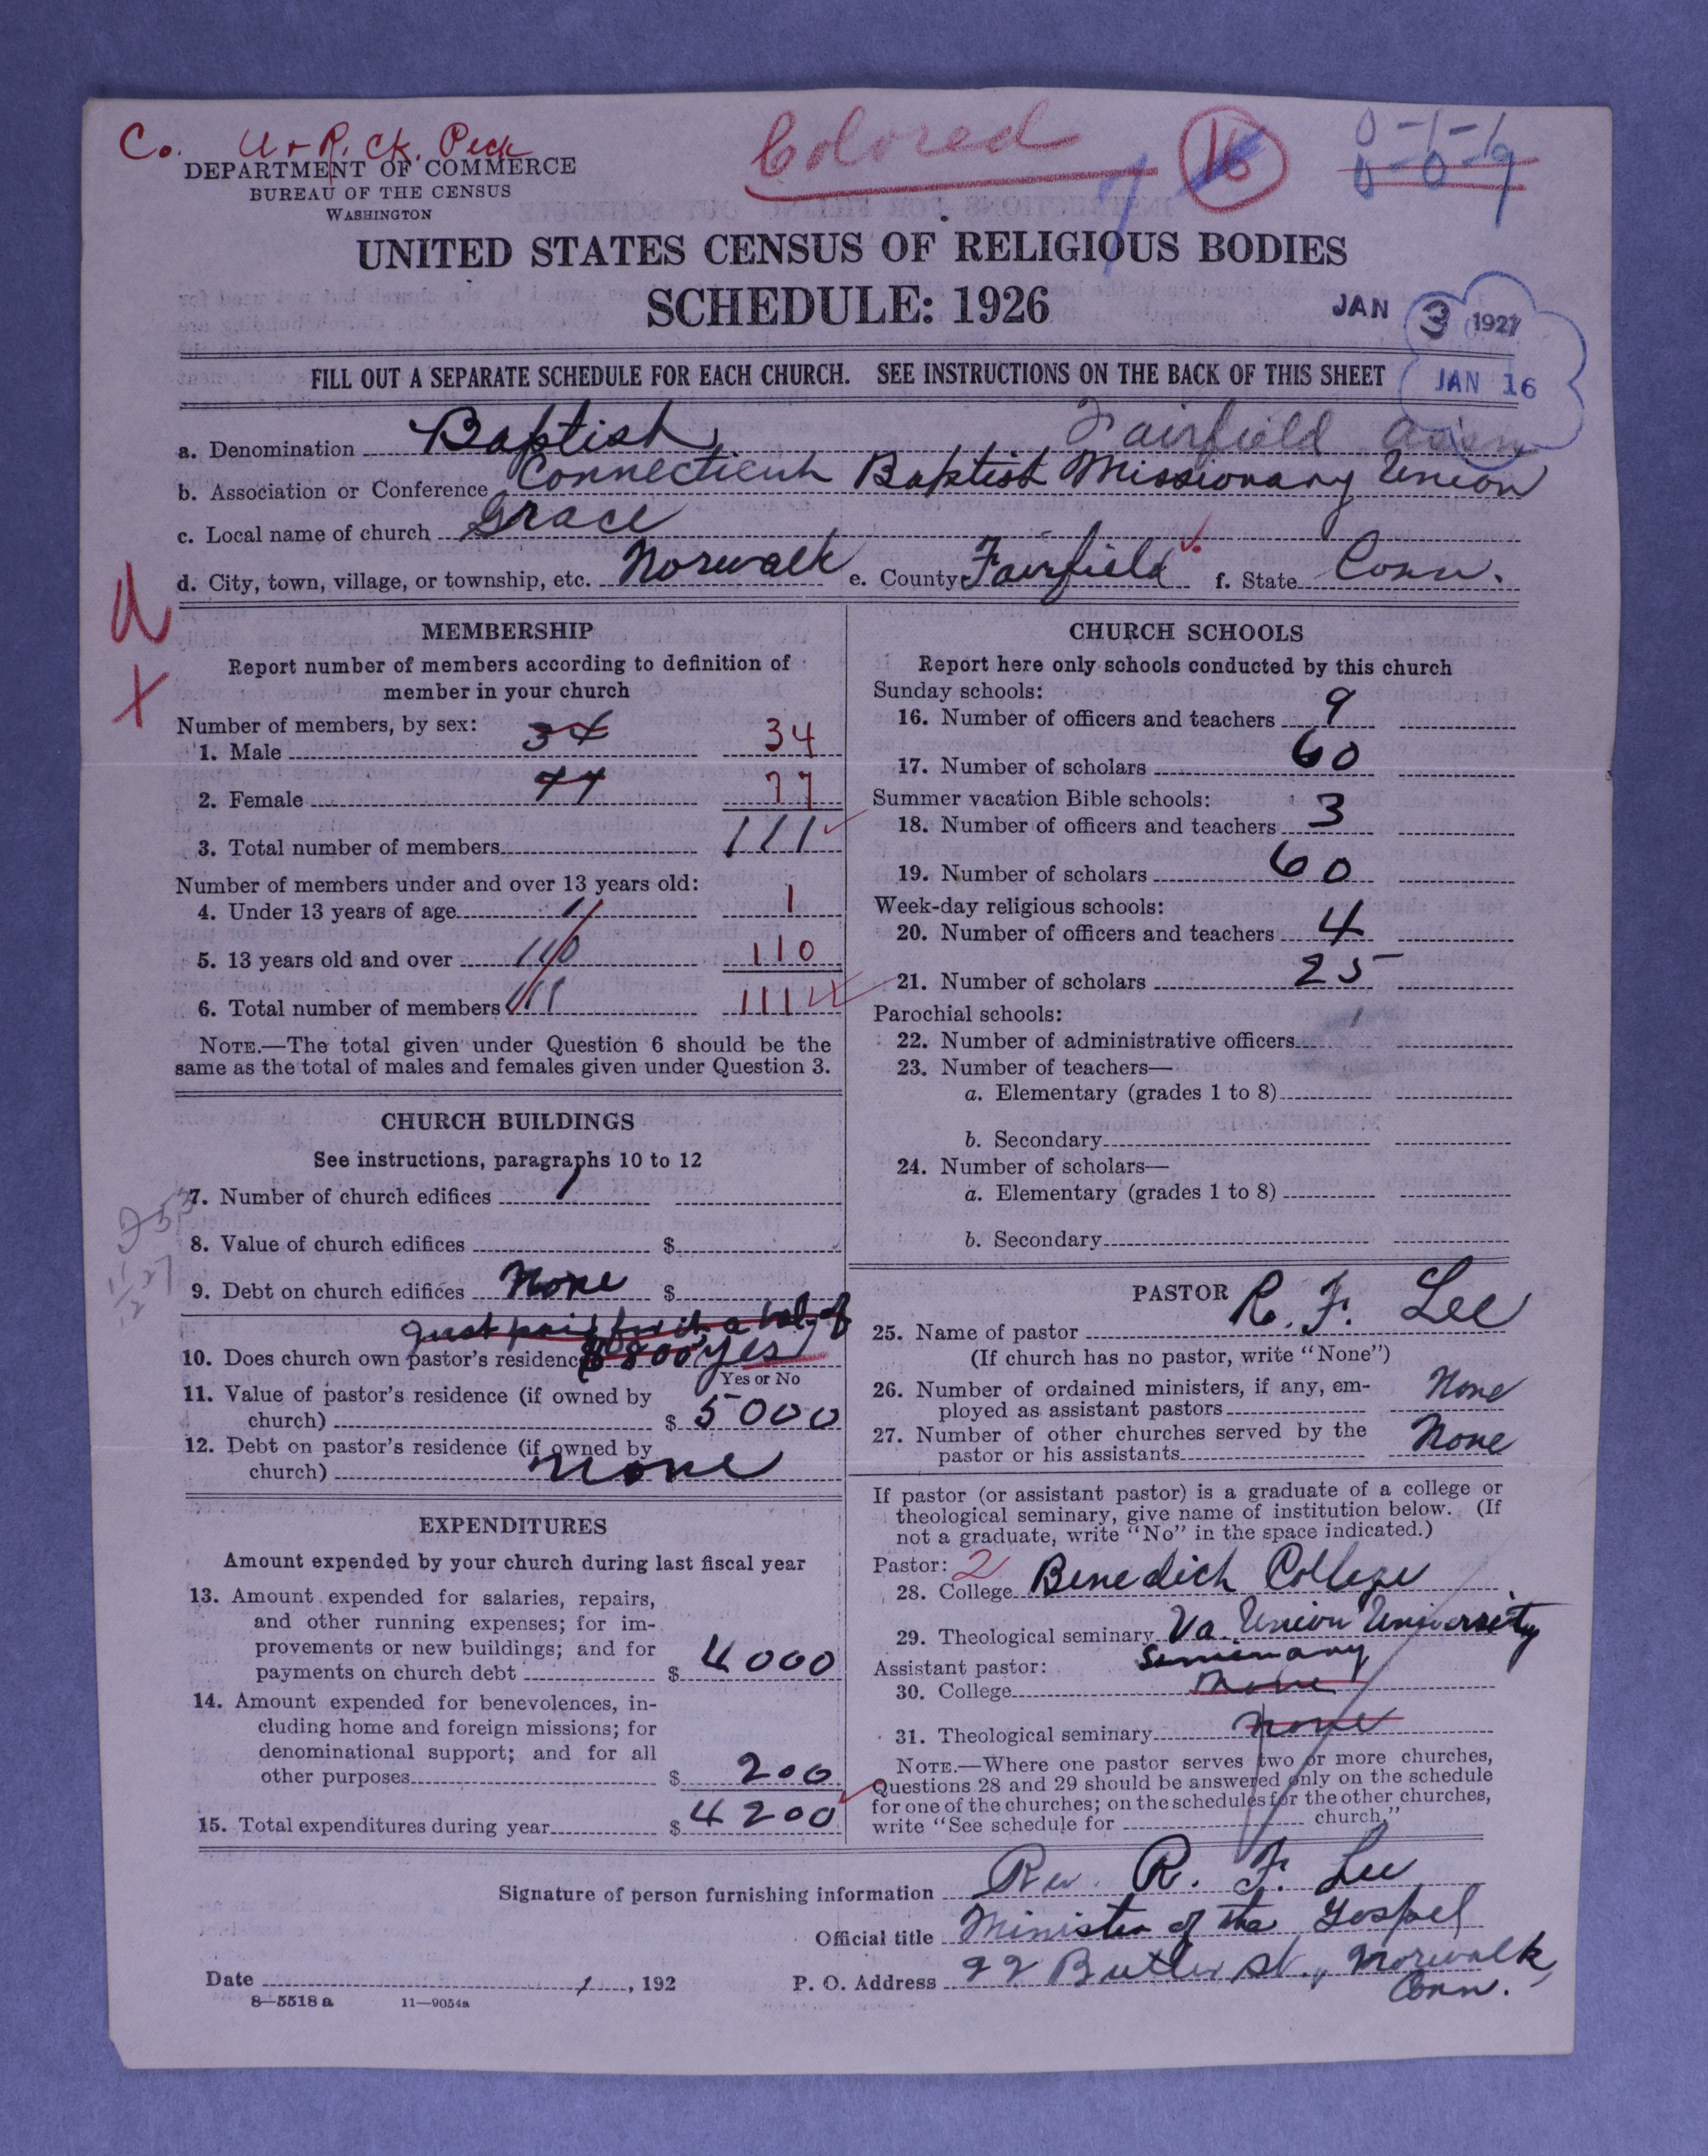 Co. U + R. Ck. Peck
Colored
16
0-1-6
0-0-9
DEPARTMENT OF COMMERCE
BUREAU OF THE CENSUS
WASHINGTON
UNITED STATES CENSUS OF RELIGIOUS BODIES
SCHEDULE: 1926
JAN 3 1927
FILL OUT A SEPARATE SCHEDULE FOR EACH CHURCH. SEE INSTRUCTIONS ON THE BACK OF THIS SHEET
JAN 16
a. Denomination Baptist Fairfield Ass'n
b. Association or Conference Connecticut Baptist Missionary Union
c. Local name of church Grace
d. City, town, village, or township, etc. Norwalk e. County Fairfield f. State Conn.
MEMBERSHIP
Report number of members according to definition of
member in your church
Number of members, by sex:
1. Male 34 34
2. Female 77 77
3. Total number of members 111
Number of members under and over 13 years old:
4. Under 13 years of age 1 1
5. 13 years old and over 110 110
6. Total number of members 111 111
NOTE.—The total given under Question 6 should be the
same as the total of males and females given under Question 3.
CHURCH BUILDINGS
See instructions, paragraphs 10 to 12
7. Number of church edifices 1
8. Value of church edifices $
9. Debt on church edifices None $
just paid for it a bal. of
10. Does church own pastor's residence $800 yes
Yes or No
11. Value of pastor's residence (if owned by
church) $ 5000
12. Debt on pastor's residence (if owned by
church) none
EXPENDITURES
Amount expended by your church during last fiscal year
13. Amount expended for salaries, repairs,
and other running expenses; for im-
provements or new buildings; and for
payments on church debt $ 4000
14. Amount expended for benevolences, in-
cluding home and foreign missions; for
denominational support; and for all
other purposes $ 200
15. Total expenditures during year $ 4200
CHURCH SCHOOLS
Report here only schools conducted by this church
Sunday schools:
16. Number of officers and teachers 9
17. Number of scholars 60
Summer vacation Bible schools:
18. Number of officers and teachers 3
19. Number of scholars 60
Week-day religious schools:
20. Number of officers and teachers 4
21. Number of scholars 25
Parochial schools:
22. Number of administrative officers
23. Number of teachers—
a. Elementary (grades 1 to 8)
b. Secondary
24. Number of scholars—
a. Elementary (grades 1 to 8)
b. Secondary
PASTOR
25. Name of pastor R. F. Lee
(If church has no pastor, write "None")
26. Number of ordained ministers, if any, em-
ployed as assistant pastors None
27. Number of other churches served by the
pastor or his assistants None
If pastor (or assistant pastor) is a graduate of a college or
theological seminary, give name of institution below. (If
not a graduate, write "No" in the space indicated.)
Pastor: 2
28. College Benedict College
29. Theological seminary Va. Union University
Seminary
Assistant pastor:
30. College None
31. Theological seminary None
NOTE.—Where one pastor serves two or more churches,
Questions 28 and 29 should be answered only on the schedule
for one of the churches; on the schedules for the other churches,
write "See schedule for church."
Signature of person furnishing information Rev. R. F. Lee
Official title Minister of the Gospel
Date 1, 192 P. O. Address 22 Butler St., Norwalk,
Conn.
8—5518 a 11—9054a